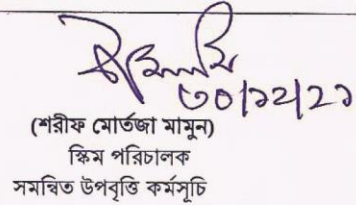 ৩০/১২/২১
(শরীফ মোর্তজা মামুন)
স্কিম পরিচালক
সমন্বিত উপবৃত্তি কর্মসূচি